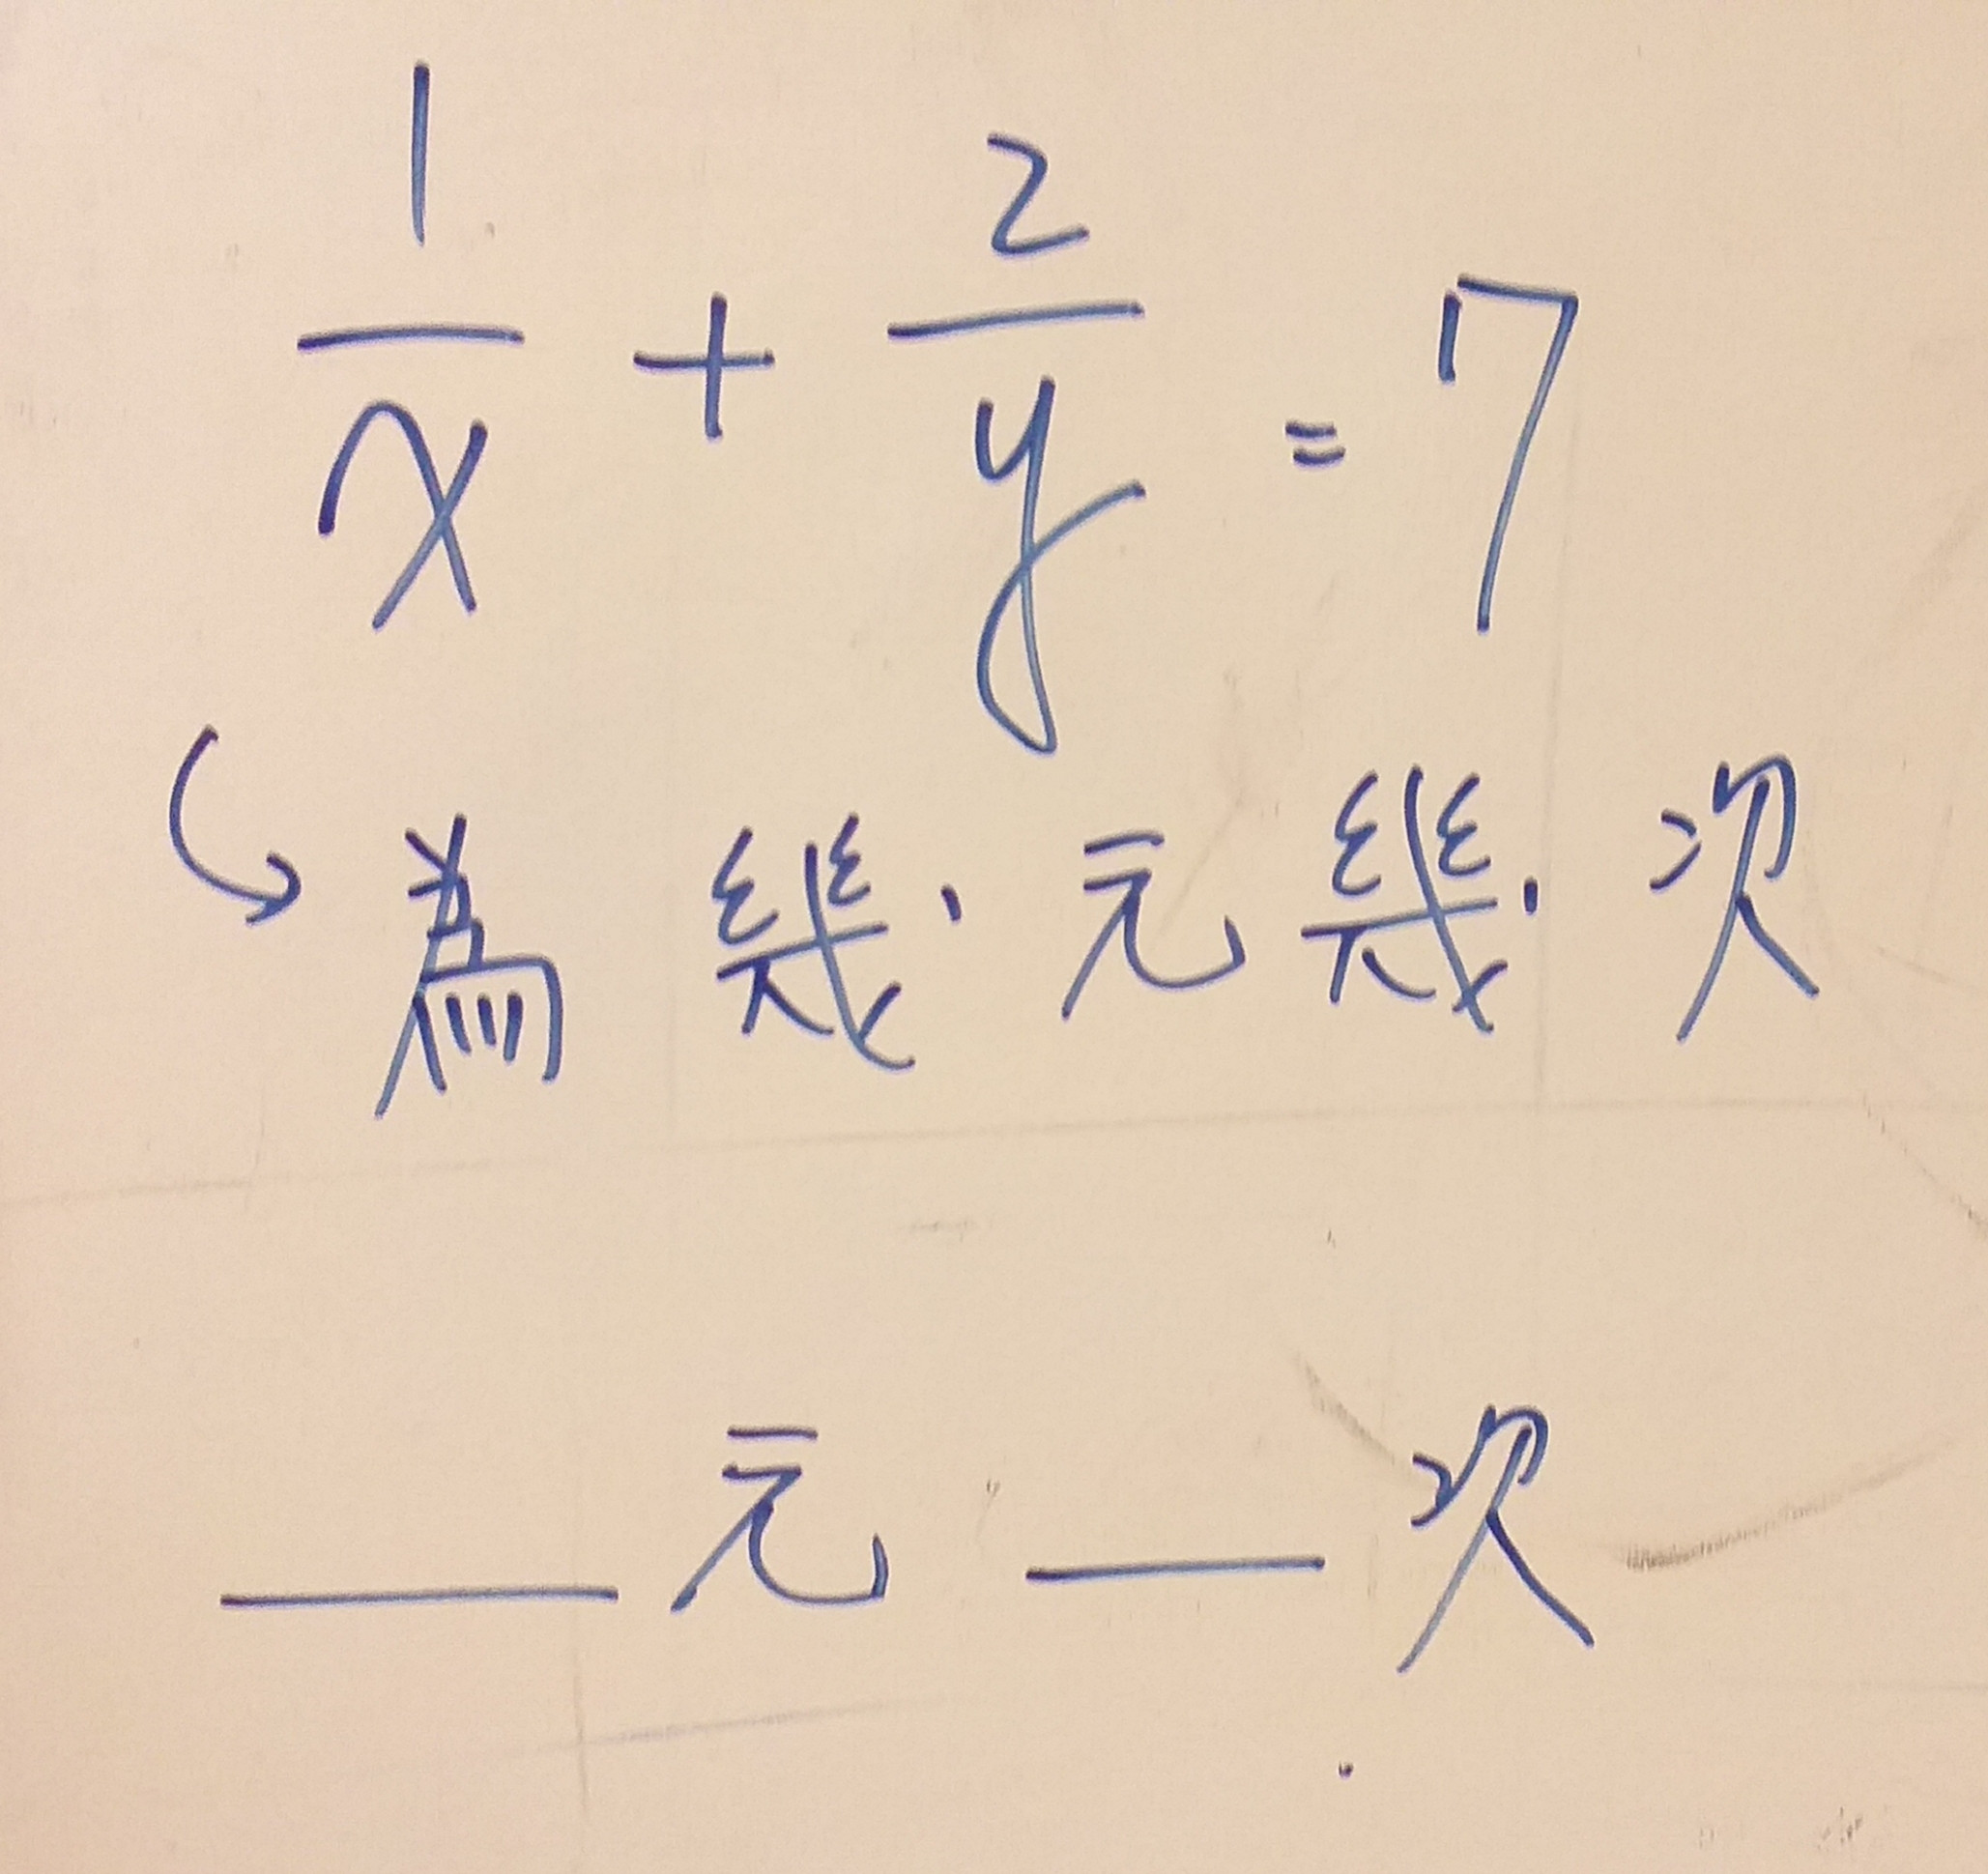 1/x + 2/y = 7
為幾元幾次
___元___次